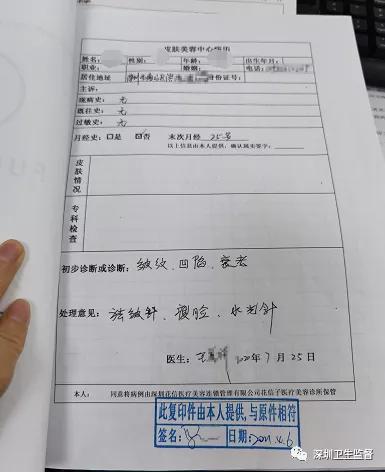 皮肤美容中心病历
姓名: 性别: 年龄: 出生年月:
职业: 婚姻: 电话:
居住地址 身份证号:
主诉:
现病史: 无
既往史: 无
过敏史: 无
月经史: □是 ☑否 末次月经 25号
以上信息由本人提供,确认属实签字:
皮肤情况
专科检查
初步诊断或诊断: 皱纹、凹陷、衰老
处理意见: 祛皱针、瘦脸、水光针
医生: 2020年7月25日
本人: 同意将病例由深圳花信医疗美容连锁管理有限公司花信子医疗美容诊所保管
此复印件由本人提供,与原件相符
签名: 日期:2021.4.6
深圳卫生监督